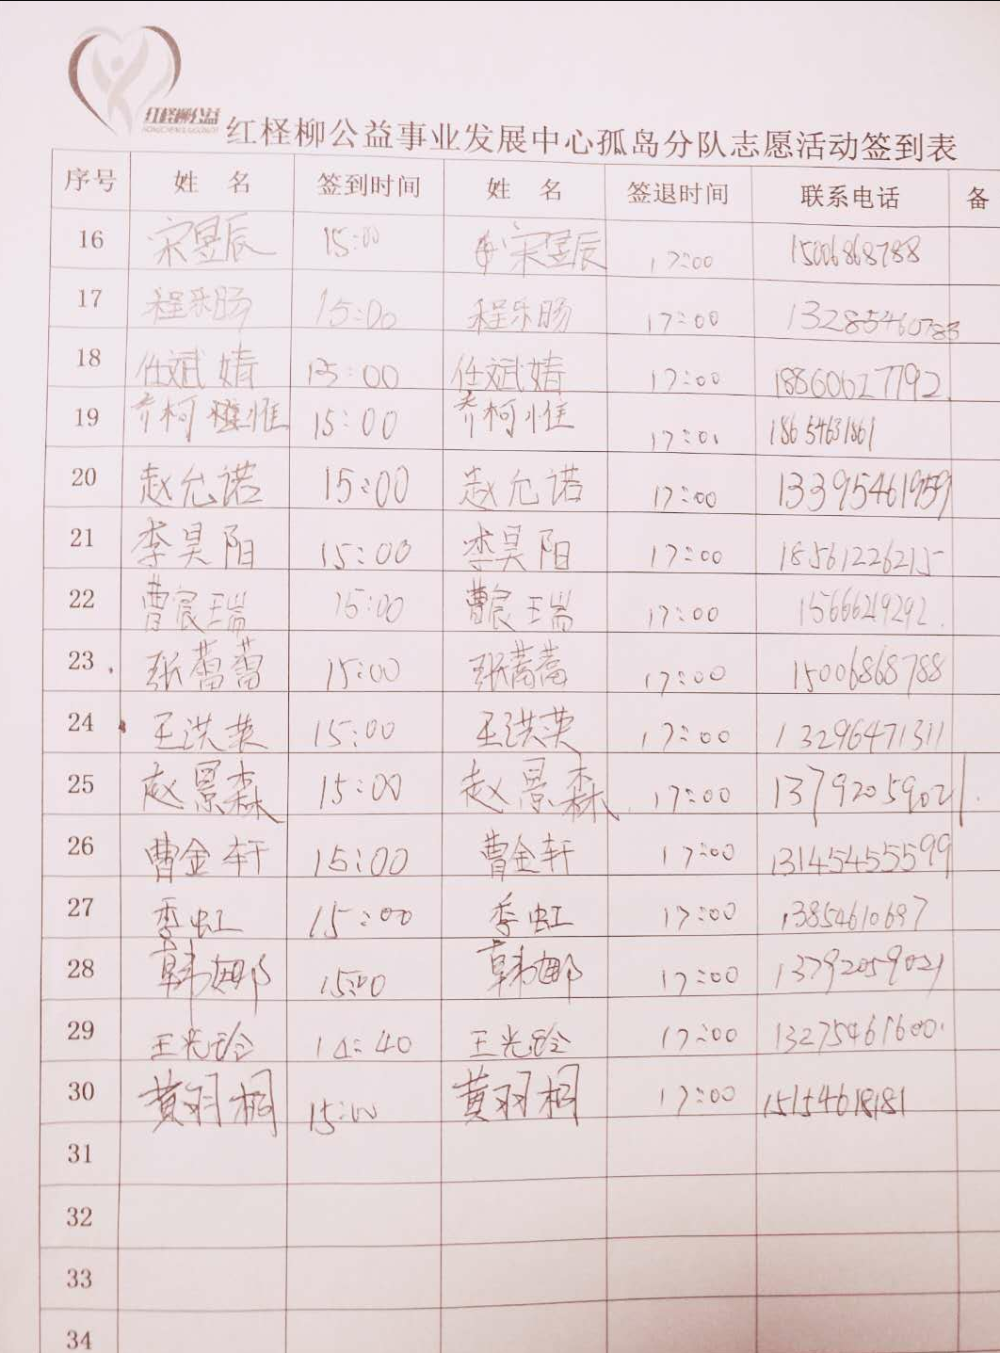 红柽柳公益
红柽柳公益事业发展中心孤岛分队志愿活动签到表
序号 姓 名 签到时间 姓 名 签退时间 联系电话 备
16 宋昱辰 15:00 宋昱辰 17:00 15006868788
17 程乐旸 15:00 程乐旸 17:00 13285460783
18 任斌婧 15:00 任斌婧 17:00 18860627792
19 乔柯惟 15:00 乔柯惟 17:00 18654631861
20 赵允诺 15:00 赵允诺 17:00 13395461959
21 李昊阳 15:00 李昊阳 17:00 18561226215
22 曹宸瑞 15:00 曹宸瑞 17:00 15666219292
23 张蕾蕾 15:00 张蕾蕾 17:00 15006868788
24 王洪英 15:00 王洪英 17:00 13296471311
25 赵景森 15:00 赵景森 17:00 13792059021
26 曹金轩 15:00 曹金轩 17:00 13145455599
27 季虹 15:00 季虹 17:00 13854610697
28 韩娜 15:00 韩娜 17:00 13792059021
29 王光玲 14:40 王光玲 17:00 13275461600
30 黄羽桐 15:00 黄羽桐 17:00 15154618181
31
32
33
34